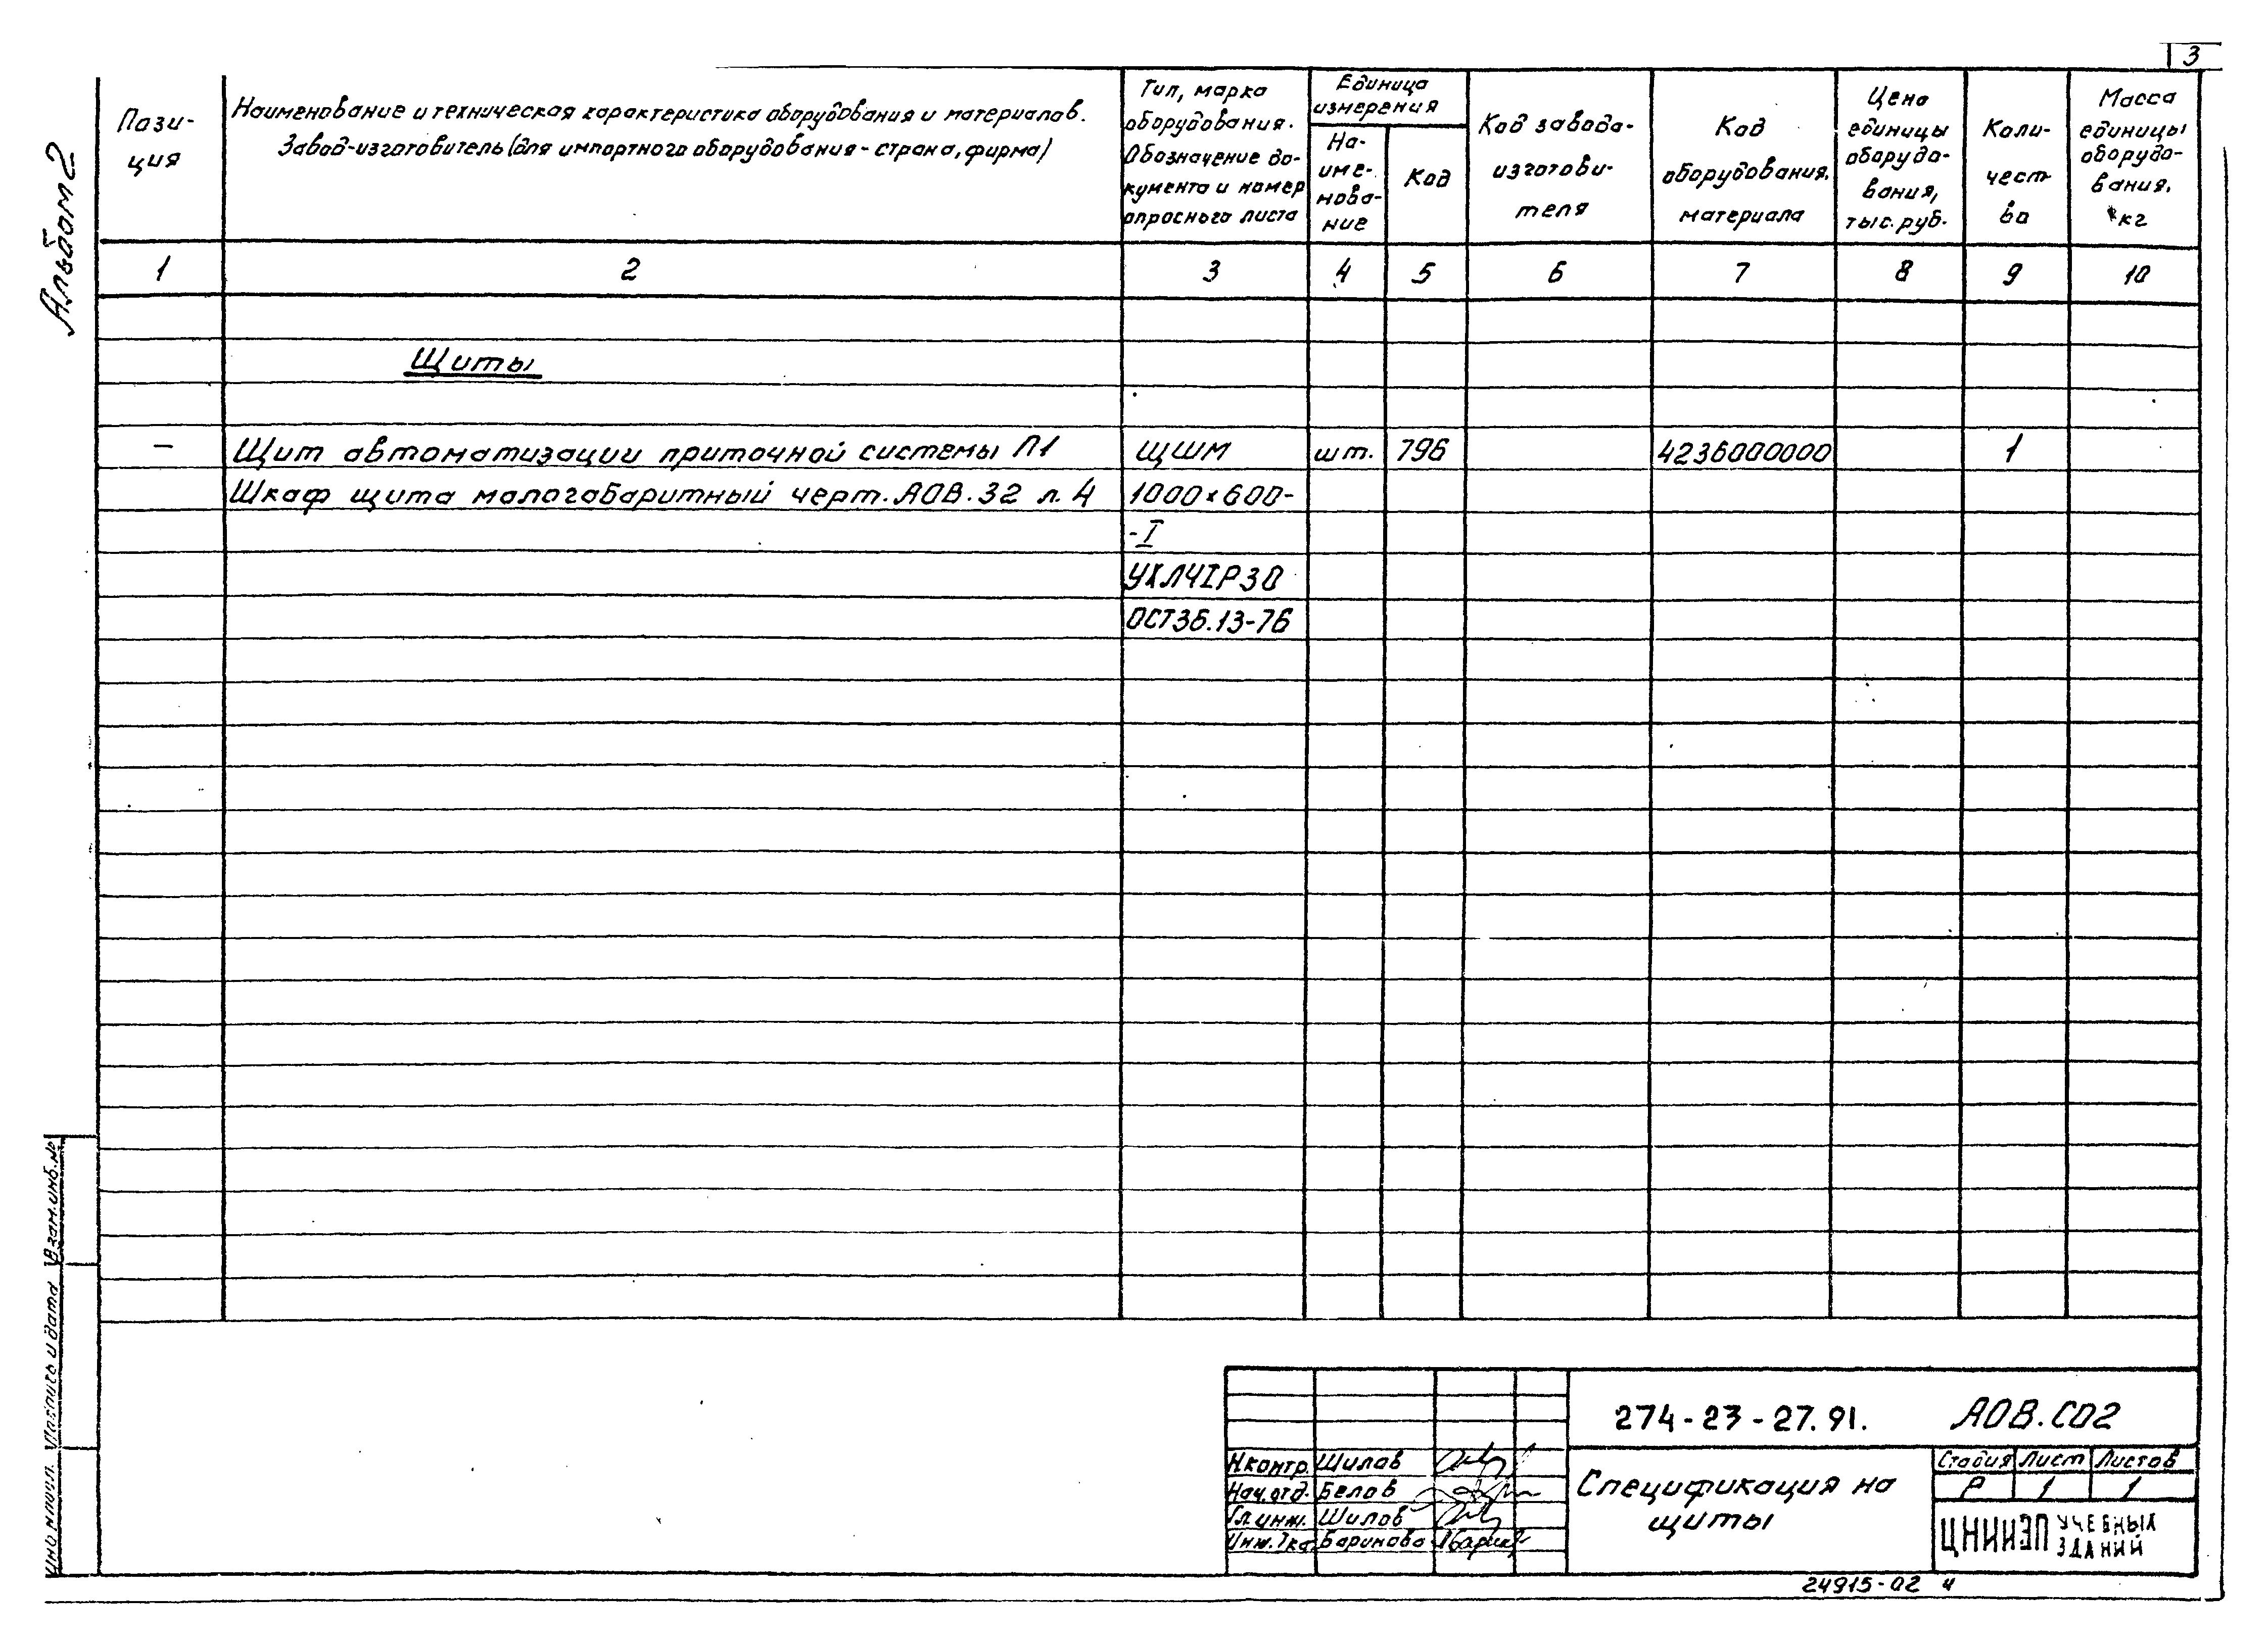 3
Альбом 2
Пози-
ция
Наименование и техническая характеристика оборудования и материалов.
Завод-изготовитель (для импортного оборудования - страна, фирма)
Тип, марка
оборудования.
Обозначение до-
кумента и номер
опросного листа
Единица
измерения
На-
име-
нова-
ние
Код
Код завода-
изготови-
теля
Код
оборудования,
материала
Цена
единицы
оборудо-
вания,
тыс. руб.
Коли-
чест-
во
Масса
единицы
оборудо-
вания,
кг
1 2 3 4 5 6 7 8 9 10
Щиты
— Щит автоматизации приточной системы П1 ЩШМ шт. 796 4236000000 1
Шкаф щита малогабаритный черт. АОВ.32 л. 4 1000х600-
-I
УХЛ4IP30
ОСТ36.13-76
Взам. инв. №
Подпись и дата
Инв № подл.
274-23-27.91. АОВ.СО2
Н.контр. Шилов
Нач. отд. Белов
Гл. инж. Шилов
Инж. 1 кат. Баринова
Спецификация на
щиты
Стадия Лист Листов
Р 1 1
ЦНИИЭП УЧЕБНЫХ
ЗДАНИЙ
24915-02 4